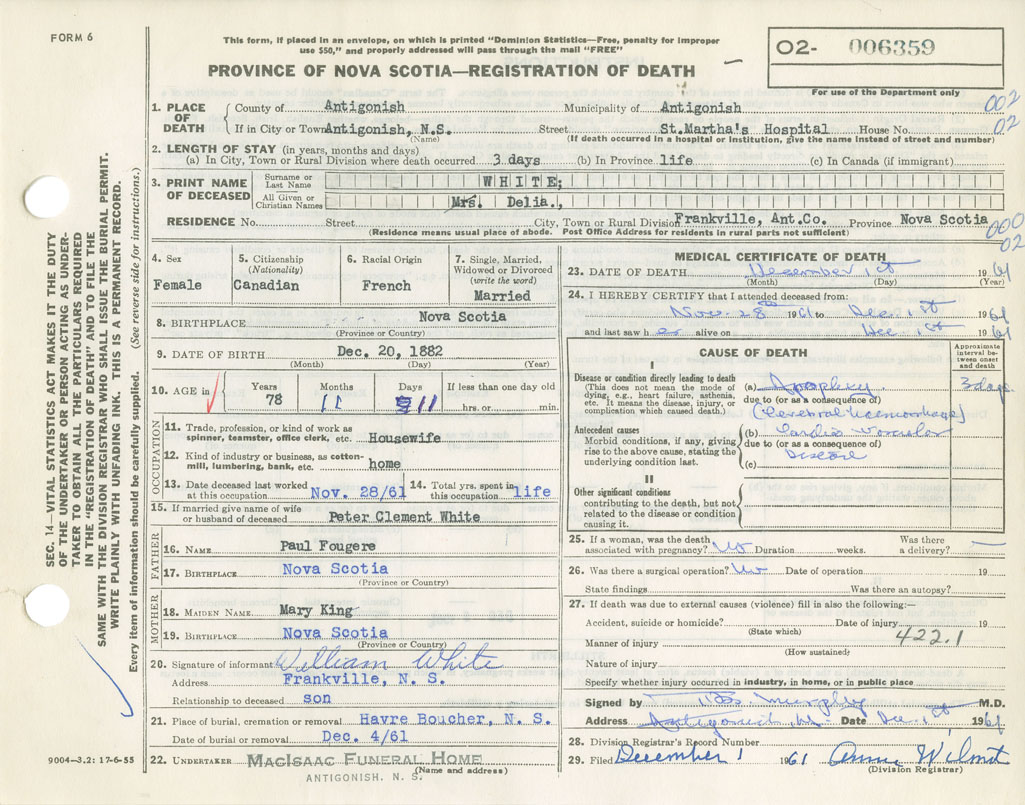 FORM 6
This form, if placed in an envelope, on which is printed "Dominion Statistics—Free, penalty for improper
use $50," and properly addressed will pass through the mail "FREE"
PROVINCE OF NOVA SCOTIA—REGISTRATION OF DEATH
02- 006359
For use of the Department only
002
02
1. PLACE OF DEATH
County of Antigonish Municipality of Antigonish
If in City or Town Antigonish, N.S. Street St.Martha's Hospital House No.
(Name) (If death occurred in a hospital or institution, give the name instead of street and number)
2. LENGTH OF STAY (in years, months and days)
(a) In City, Town or Rural Division where death occurred 3 days (b) In Province life (c) In Canada (if immigrant)
3. PRINT NAME OF DECEASED
Surname or Last Name WHITE;
All Given or Christian Names Mrs. Delia.,
RESIDENCE No. Street City, Town or Rural Division Frankville, Ant.Co. Province Nova Scotia
(Residence means usual place of abode. Post Office Address for residents in rural parts not sufficient)
000
02
4. Sex
Female
5. Citizenship
(Nationality)
Canadian
6. Racial Origin
French
7. Single, Married,
Widowed or Divorced
(write the word)
Married
8. BIRTHPLACE Nova Scotia
(Province or Country)
9. DATE OF BIRTH Dec. 20, 1882
(Month) (Day) (Year)
10. AGE in
Years Months Days If less than one day old
78 11 11 hrs. or min.
OCCUPATION
11. Trade, profession, or kind of work as
spinner, teamster, office clerk, etc. Housewife
12. Kind of industry or business, as cotton-
mill, lumbering, bank, etc. home
13. Date deceased last worked
at this occupation Nov. 28/61
14. Total yrs. spent in
this occupation life
15. If married give name of wife
or husband of deceased Peter Clement White
FATHER
16. NAME Paul Fougere
17. BIRTHPLACE Nova Scotia
(Province or Country)
MOTHER
18. MAIDEN NAME Mary King
19. BIRTHPLACE Nova Scotia
(Province or Country)
20. Signature of informant William White
Address Frankville, N. S.
Relationship to deceased son
21. Place of burial, cremation or removal Havre Boucher, N. S.
Date of burial or removal Dec. 4/61
22. UNDERTAKER MACISAAC FUNERAL HOME
ANTIGONISH, N. S. (Name and address)
MEDICAL CERTIFICATE OF DEATH
23. DATE OF DEATH December 1st 1961
(Month) (Day) (Year)
24. I HEREBY CERTIFY that I attended deceased from:
Nov. 28th 1961 to Dec. 1st 1961
and last saw her alive on Dec 1st 1961
CAUSE OF DEATH
Approximate
interval be-
tween onset
and death
I
Disease or condition directly leading to death
(This does not mean the mode of
dying, e.g., heart failure, asthenia,
etc. It means the disease, injury, or
complication which caused death.)
(a) Apoplexy 3 days
due to (or as a consequence of)
(Cerebral haemorrhage)
Antecedent causes
Morbid conditions, if any, giving
rise to the above cause, stating the
underlying condition last.
(b) Cardio Vascular
due to (or as a consequence of)
Disease
(c)
II
Other significant conditions
contributing to the death, but not
related to the disease or condition
causing it.
25. If a woman, was the death
associated with pregnancy? No Duration weeks.
Was there
a delivery? —
26. Was there a surgical operation? No Date of operation 19
State findings Was there an autopsy?
27. If death was due to external causes (violence) fill in also the following:—
Accident, suicide or homicide? Date of injury 19
(State which)
422.1
Manner of injury
(How sustained)
Nature of injury
Specify whether injury occurred in industry, in home, or in public place
Signed by Murphy M.D.
Address Antigonish Date Dec. 1st 1961
28. Division Registrar's Record Number
29. Filed December 1 1961 Anne Wilmot
(Division Registrar)
SEC. 14—VITAL STATISTICS ACT MAKES IT THE DUTY
OF THE UNDERTAKER OR PERSON ACTING AS UNDER-
TAKER TO OBTAIN ALL THE PARTICULARS REQUIRED
IN THE "REGISTRATION OF DEATH" AND TO FILE THE
SAME WITH THE DIVISION REGISTRAR WHO SHALL ISSUE THE BURIAL PERMIT.
WRITE PLAINLY WITH UNFADING INK. THIS IS A PERMANENT RECORD.
Every item of information should be carefully supplied. (See reverse side for instructions.)
9004—3.2: 17-6-55